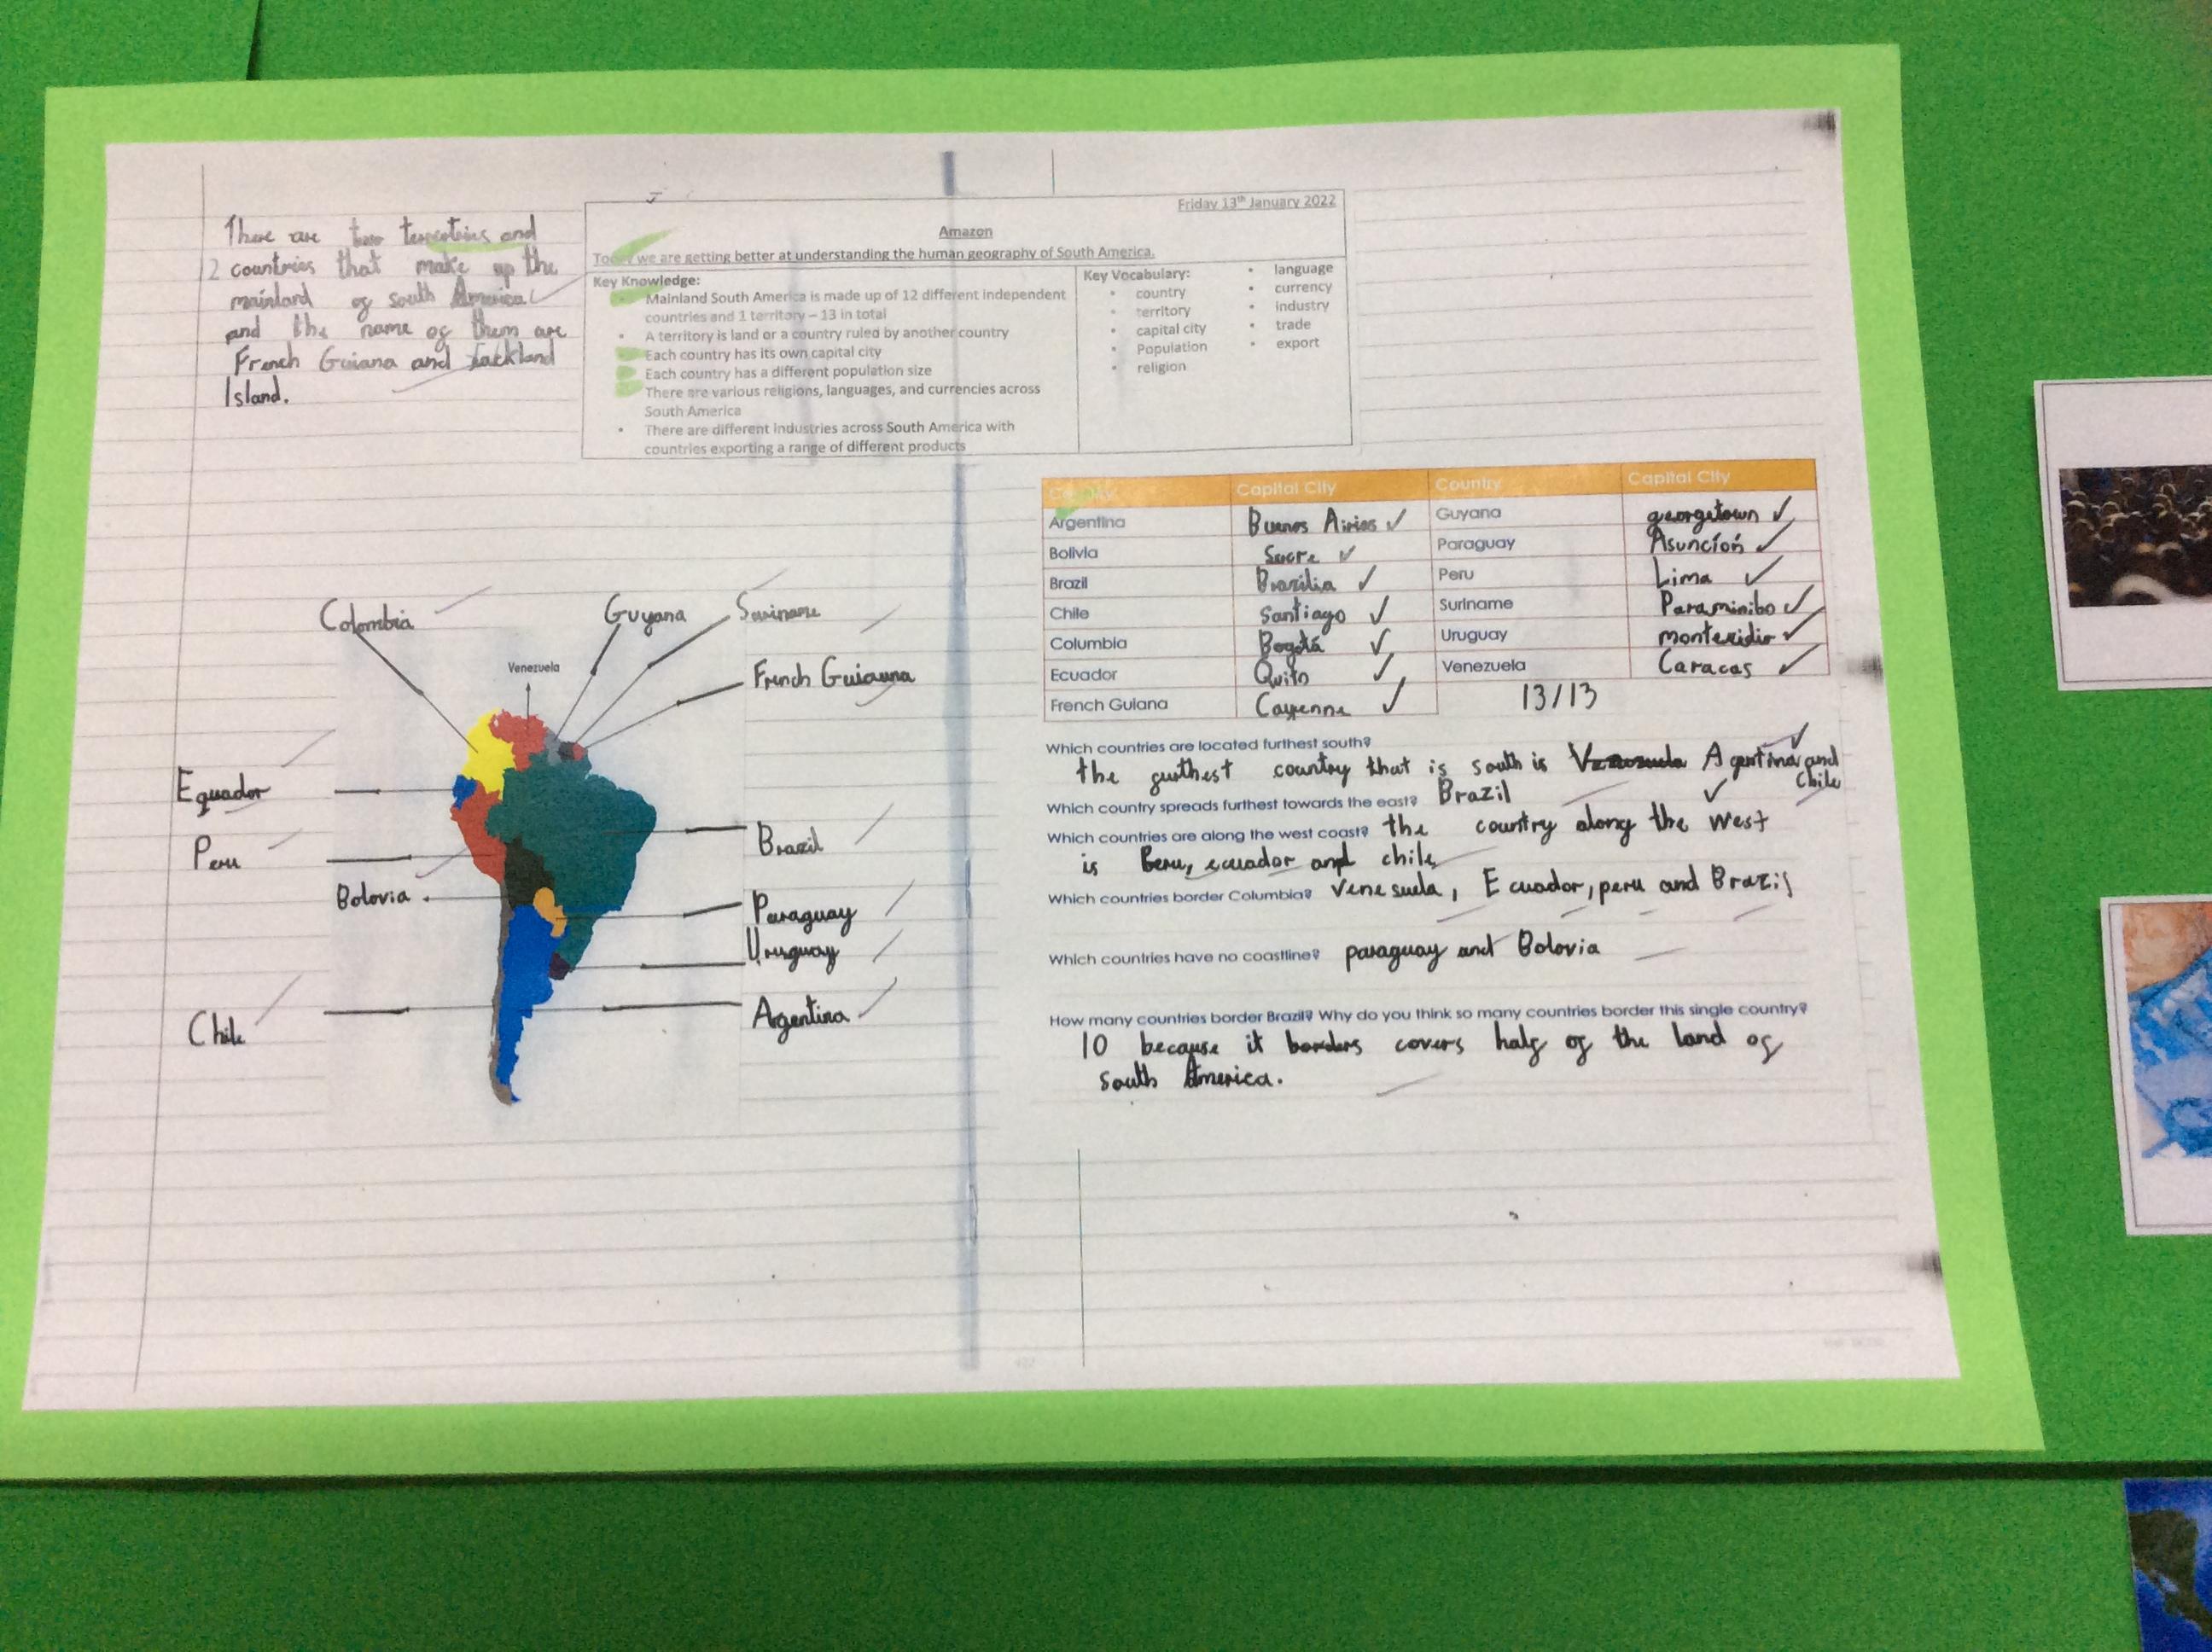 There are two terrotories and
12 countries that make up the
mainland of south America
and the name of them are
French Guiana and
Island.
Friday 13th January 2022
Amazon
Today we are getting better at understanding the human geography of South America.
Key Knowledge:
Mainland South America is made up of 12 different independent
countries and 1 territory – 13 in total
• A territory is land or a country ruled by another country
Each country has its own capital city
Each country has a different population size
There are various religions, languages, and currencies across
South America
• There are different industries across South America with
countries exporting a range of different products
Key Vocabulary:
• country
• territory
• capital city
• Population
• religion
• language
• currency
• industry
• trade
• export
Colombia
Guyana
Suriname
Venezuela
French Guiauna
Equador
Peru
Bolovia
Chile
Brazil
Paraguay
Uruguay
Argentina
Country Capital City Country Capital City
Argentina Buenos Airies ✓ Guyana georgetown ✓
Bolivia Sucre ✓ Paraguay Asuncíon ✓
Brazil Brazilia ✓ Peru Lima ✓
Chile Santiago ✓ Suriname Paraminibo ✓
Columbia Bogotá ✓ Uruguay montevidio ✓
Ecuador Quito ✓ Venezuela Caracas ✓
French Guiana Cayenne ✓ 13/13
Which countries are located furthest south?
the furthest country that is south is Venezuela Agentina and
Chile
Which country spreads furthest towards the east? Brazil
Which countries are along the west coast? the country along the west
is Peru, ecuador and chile
Which countries border Columbia? Venesuela, Ecuador, peru and Brazil
Which countries have no coastline? paraguay and Bolovia
How many countries border Brazil? Why do you think so many countries border this single country?
10 because it borders covers half of the land of
south America.